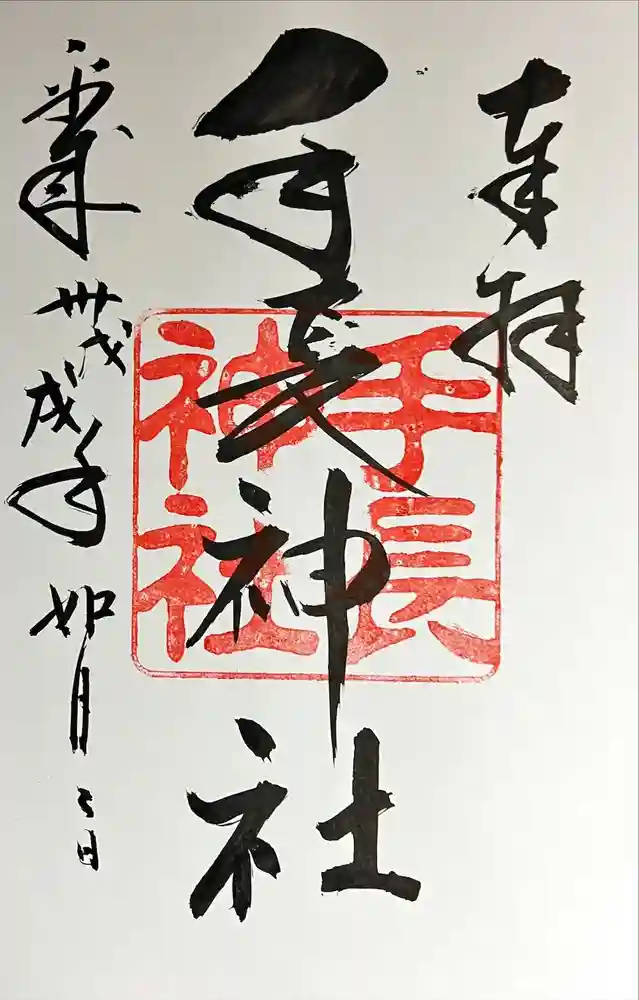 奉拝
手長神社
手長
神社
平成卅戊戌年如月 日